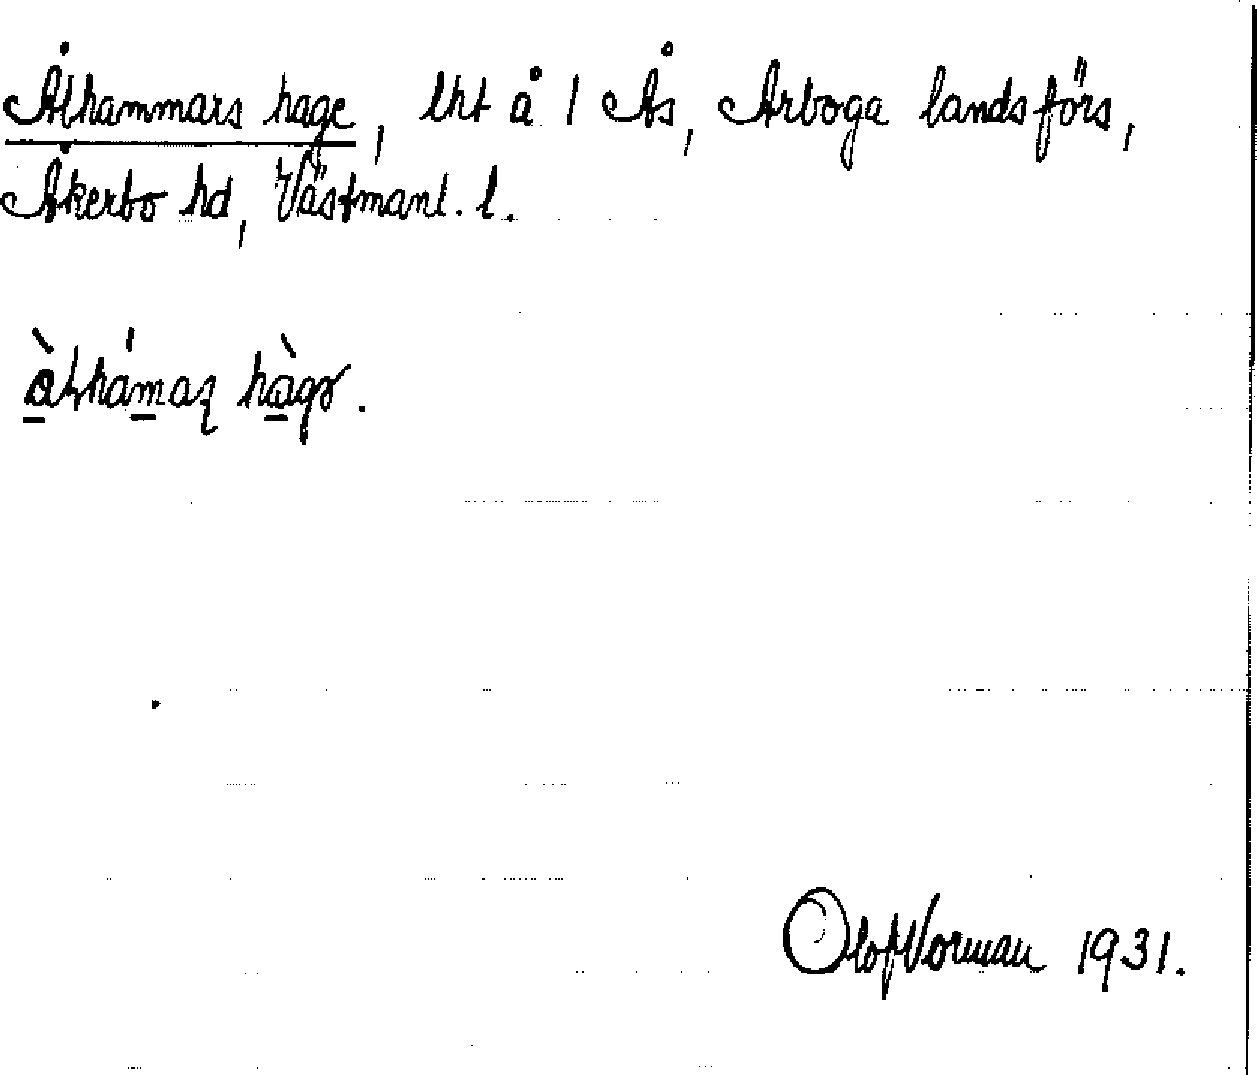 Ålhammars hage, lht å 1 Ås, Arboga landsförs,
Åkerbo hd, Västmanl. l.
hàgə.
Olof Norman 1931.